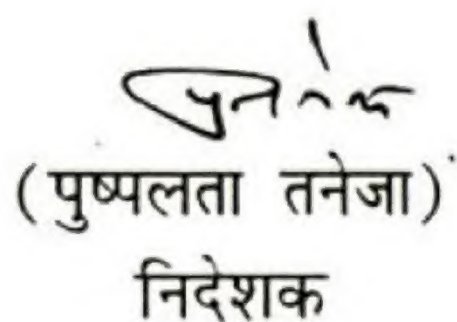 (पुष्पलता तनेजा)
निदेशक